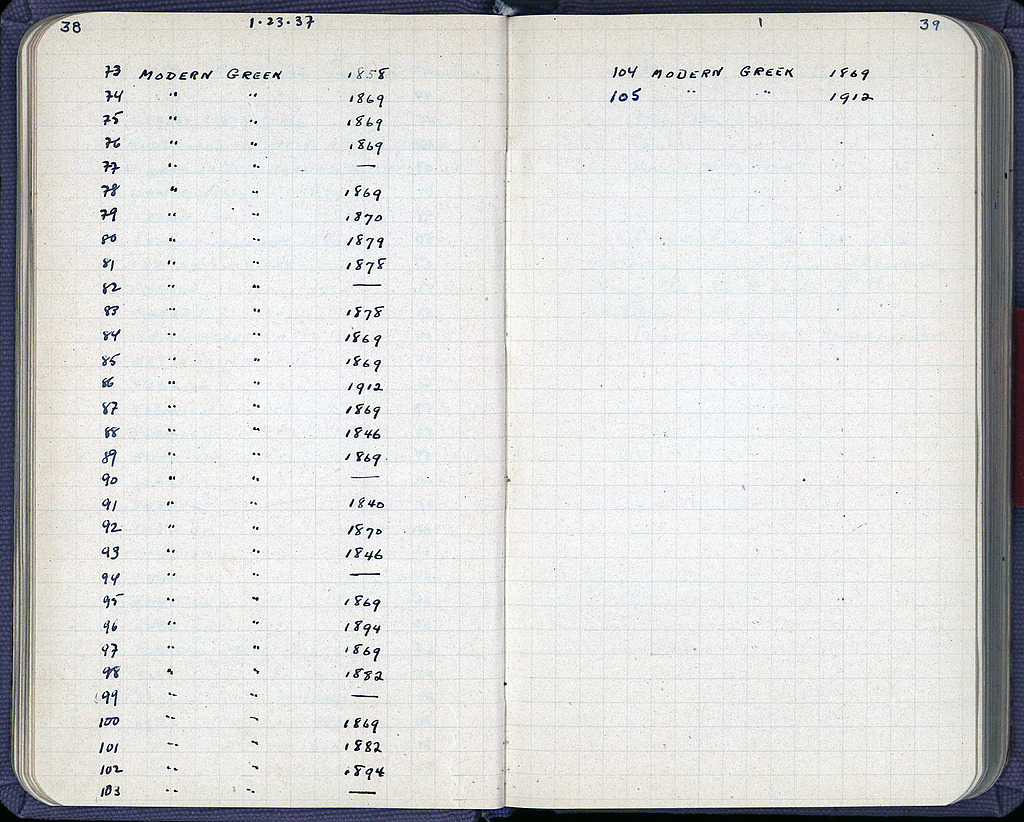 38 1·23·37
73 MODERN GREEK 1858
74 " " 1869
75 " " 1869
76 " " 1869
77 " " —
78 " " 1869
79 " " 1870
80 " " 1879
81 " " 1878
82 " " —
83 " " 1878
84 " " 1869
85 " " 1869
86 " " 1912
87 " " 1869
88 " " 1846
89 " " 1869
90 " " —
91 " " 1840
92 " " 1870
93 " " 1846
94 " " —
95 " " 1869
96 " " 1894
97 " " 1869
98 " " 1882
99 " " —
100 " " 1869
101 " " 1882
102 " " 1894
103 " " —
1 39
104 MODERN GREEK 1869
105 " " 1912